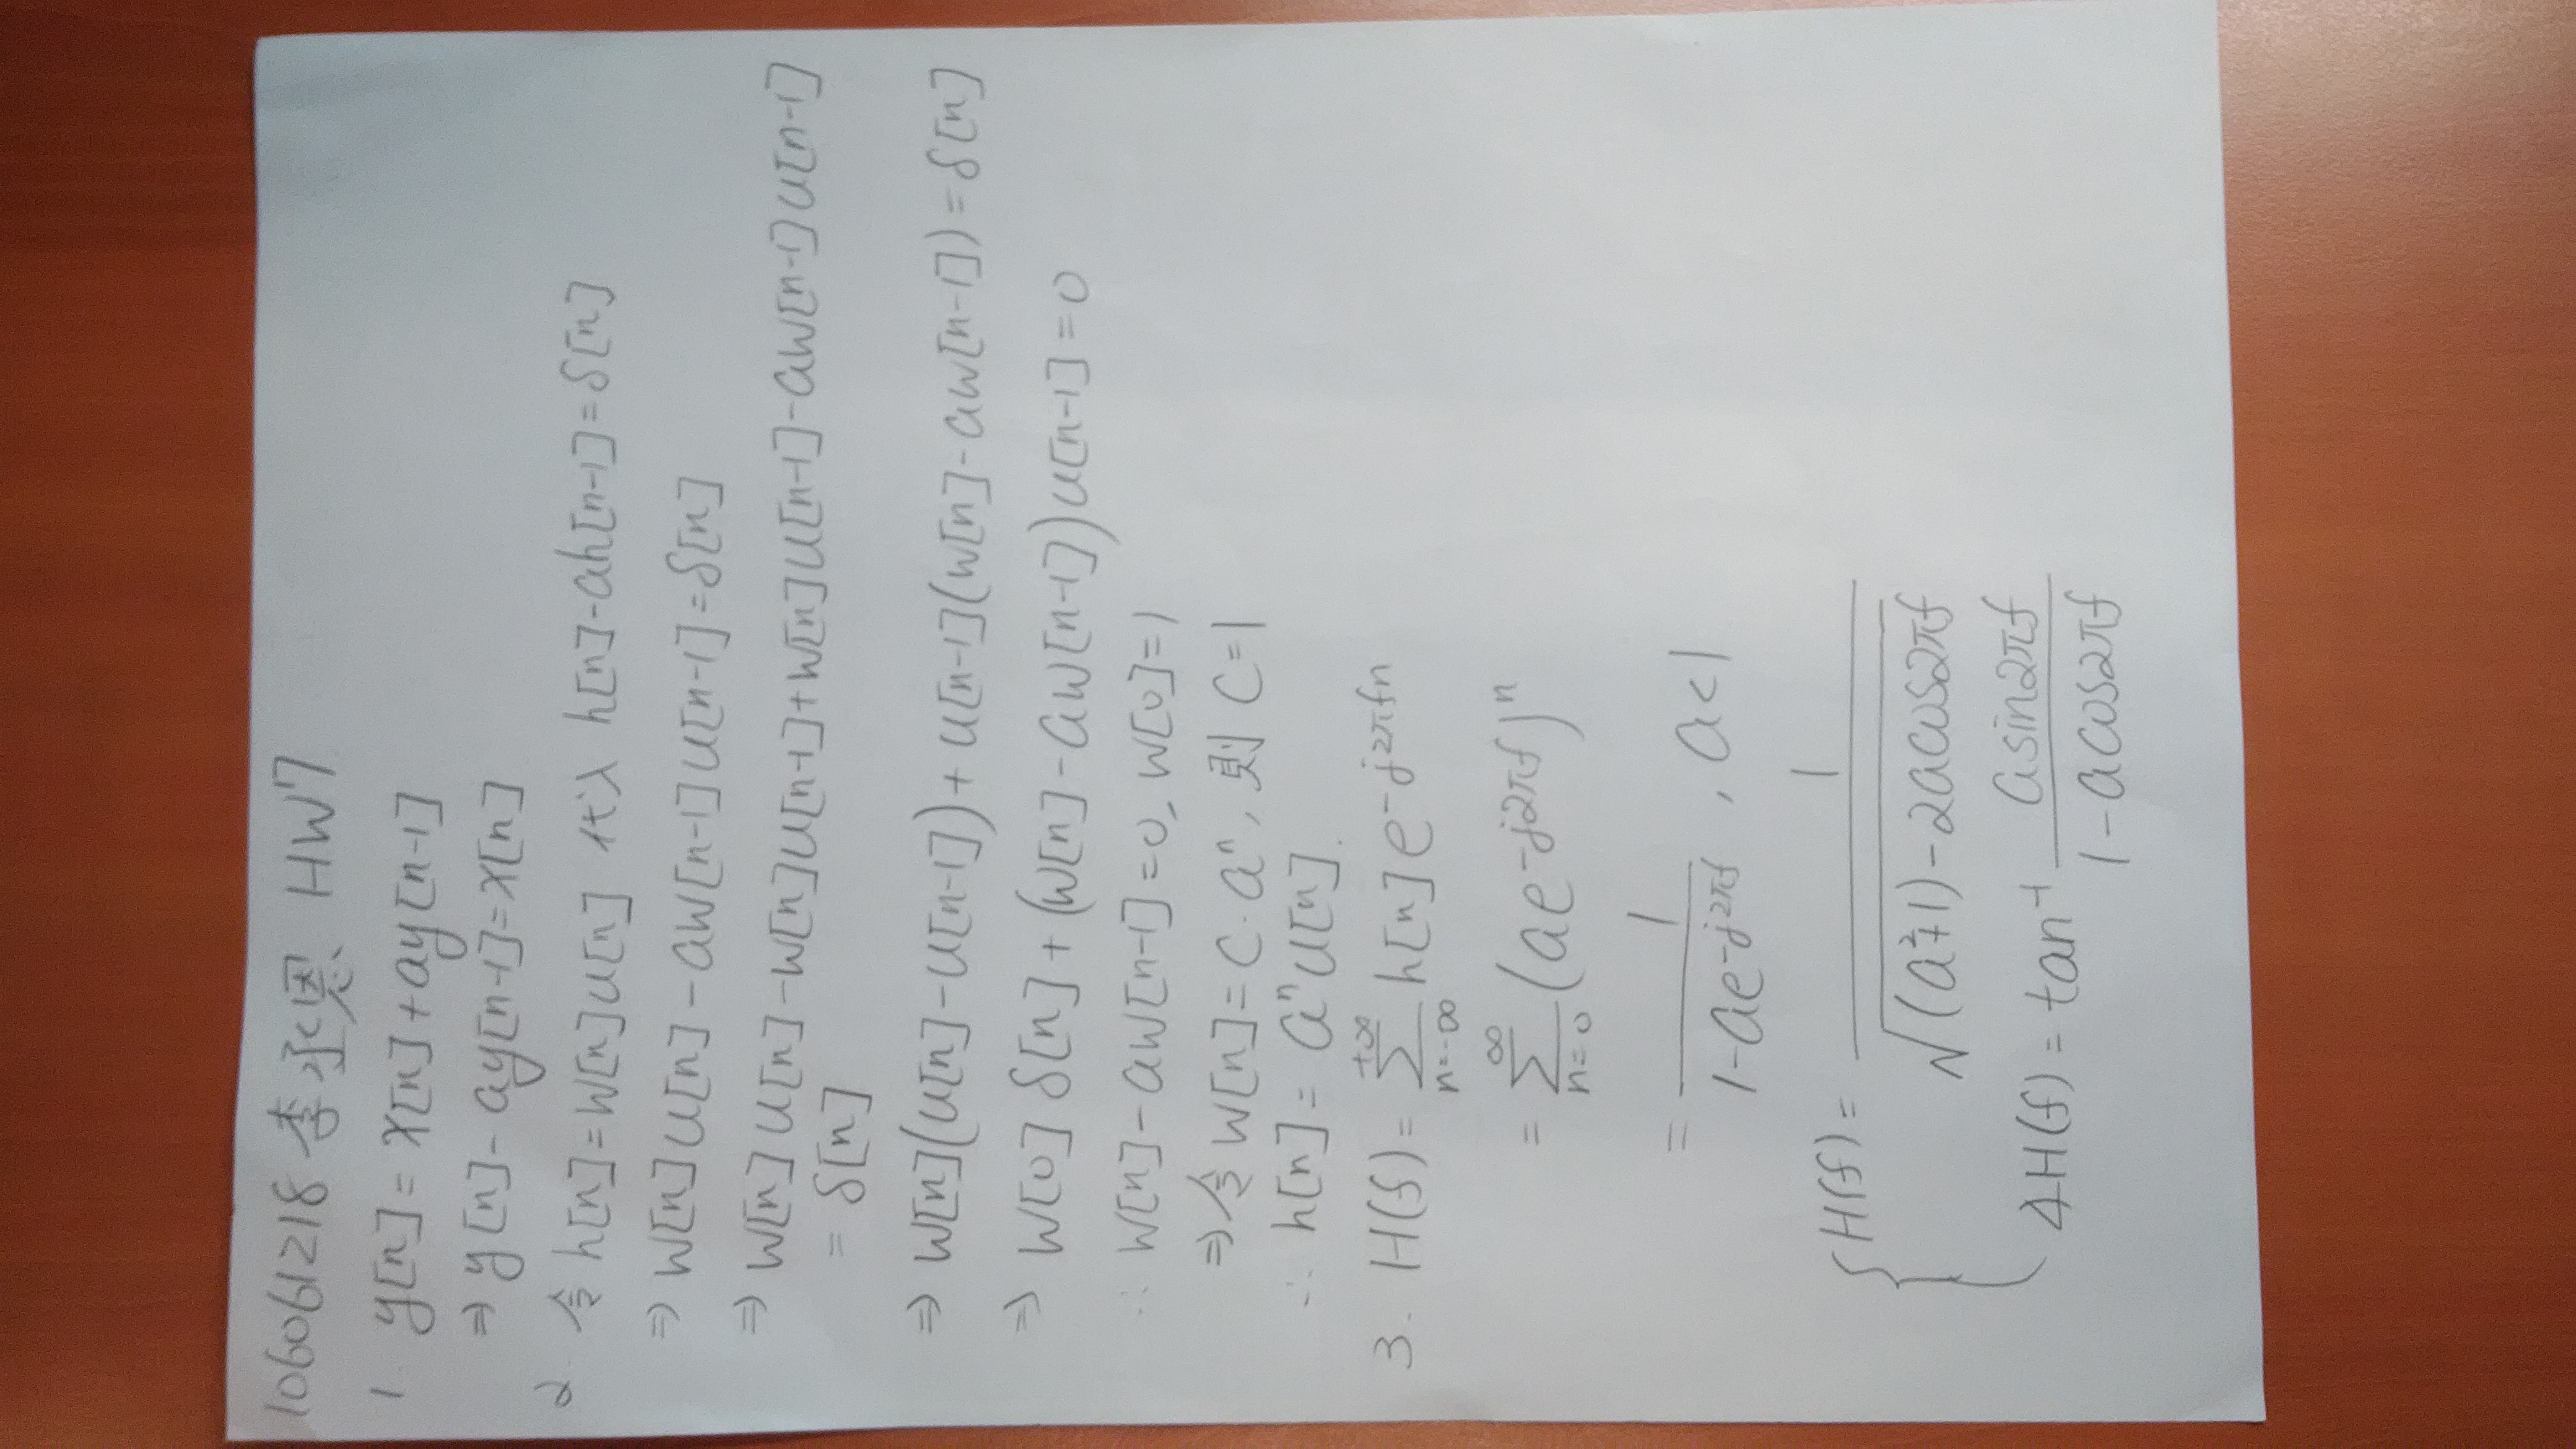 106061218 李承恩 HW7
1. y[n]=x[n]+ay[n-1]
⇒ y[n]-ay[n-1]=x[n]
2. 令 h[n]=w[n]u[n] 代入 h[n]-ah[n-1]=δ[n]
⇒ w[n]u[n]-aw[n-1]u[n-1]=δ[n]
⇒ w[n]u[n]-w[n]u[n-1]+w[n]u[n-1]-aw[n-1]u[n-1]
= δ[n]
⇒ w[n](u[n]-u[n-1])+u[n-1](w[n]-aw[n-1])=δ[n]
⇒ w[0]δ[n]+(w[n]-aw[n-1])u[n-1]=0
∴ w[n]-aw[n-1]=0, w[0]=1
⇒ 令 w[n]=C·aⁿ, 則 C=1
∴ h[n]=aⁿu[n].
3. H(f)=∑_{n=-∞}^{+∞} h[n]e^{-j2πfn}
=∑_{n=0}^{∞} (ae^{-j2πf})^n
=1/(1-ae^{-j2πf}), a<1
{ H(f)=1/√((a²+1)-2acos2πf)
∡H(f)=tan⁻¹ asin2πf/(1-acos2πf)